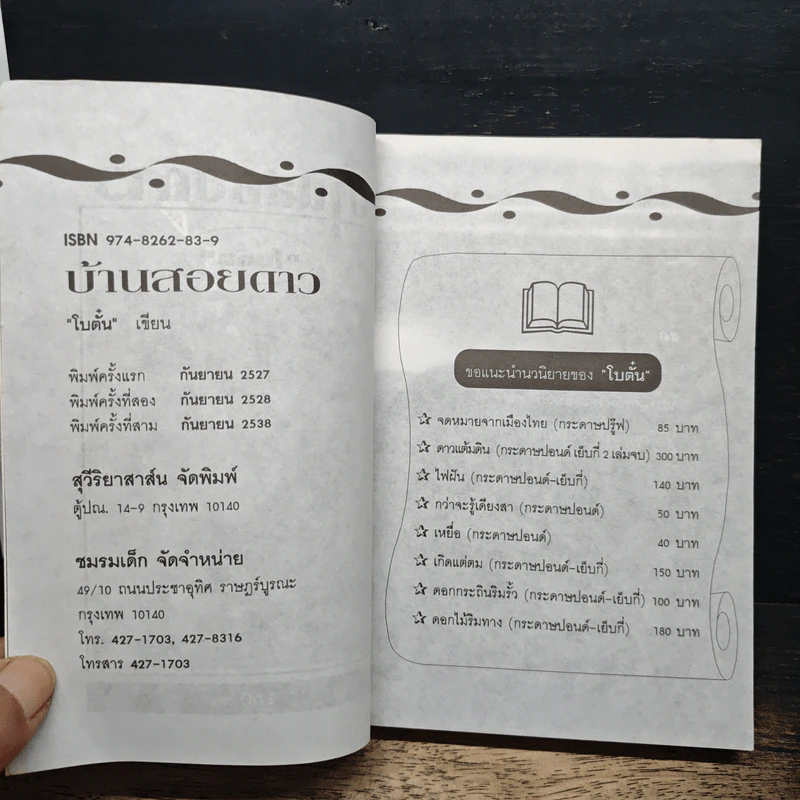 ISBN 974-8262-83-9
บ้านสอยดาว
"โบตั๋น" เขียน
พิมพ์ครั้งแรก กันยายน 2527
พิมพ์ครั้งที่สอง กันยายน 2528
พิมพ์ครั้งที่สาม กันยายน 2538
สุวีริยาสาส์น จัดพิมพ์
ตู้ปณ. 14-9 กรุงเทพ 10140
ชมรมเด็ก จัดจำหน่าย
49/10 ถนนประชาอุทิศ ราษฎร์บูรณะ
กรุงเทพ 10140
โทร. 427-1703, 427-8316
โทรสาร 427-1703
ขอแนะนำนวนิยายของ "โบตั๋น"
จดหมายจากเมืองไทย (กระดาษปรู๊ฟ) 85 บาท
ดาวแต้มดิน (กระดาษปอนด์ เย็บกี่ 2 เล่มจบ) 300 บาท
ไฟฝัน (กระดาษปอนด์-เย็บกี่) 140 บาท
กว่าจะรู้เดียงสา (กระดาษปอนด์) 50 บาท
เหยื่อ (กระดาษปอนด์) 40 บาท
เกิดแต่ตม (กระดาษปอนด์-เย็บกี่) 150 บาท
ดอกกระถินริมรั้ว (กระดาษปอนด์-เย็บกี่) 100 บาท
ดอกไม้ริมทาง (กระดาษปอนด์-เย็บกี่) 180 บาท